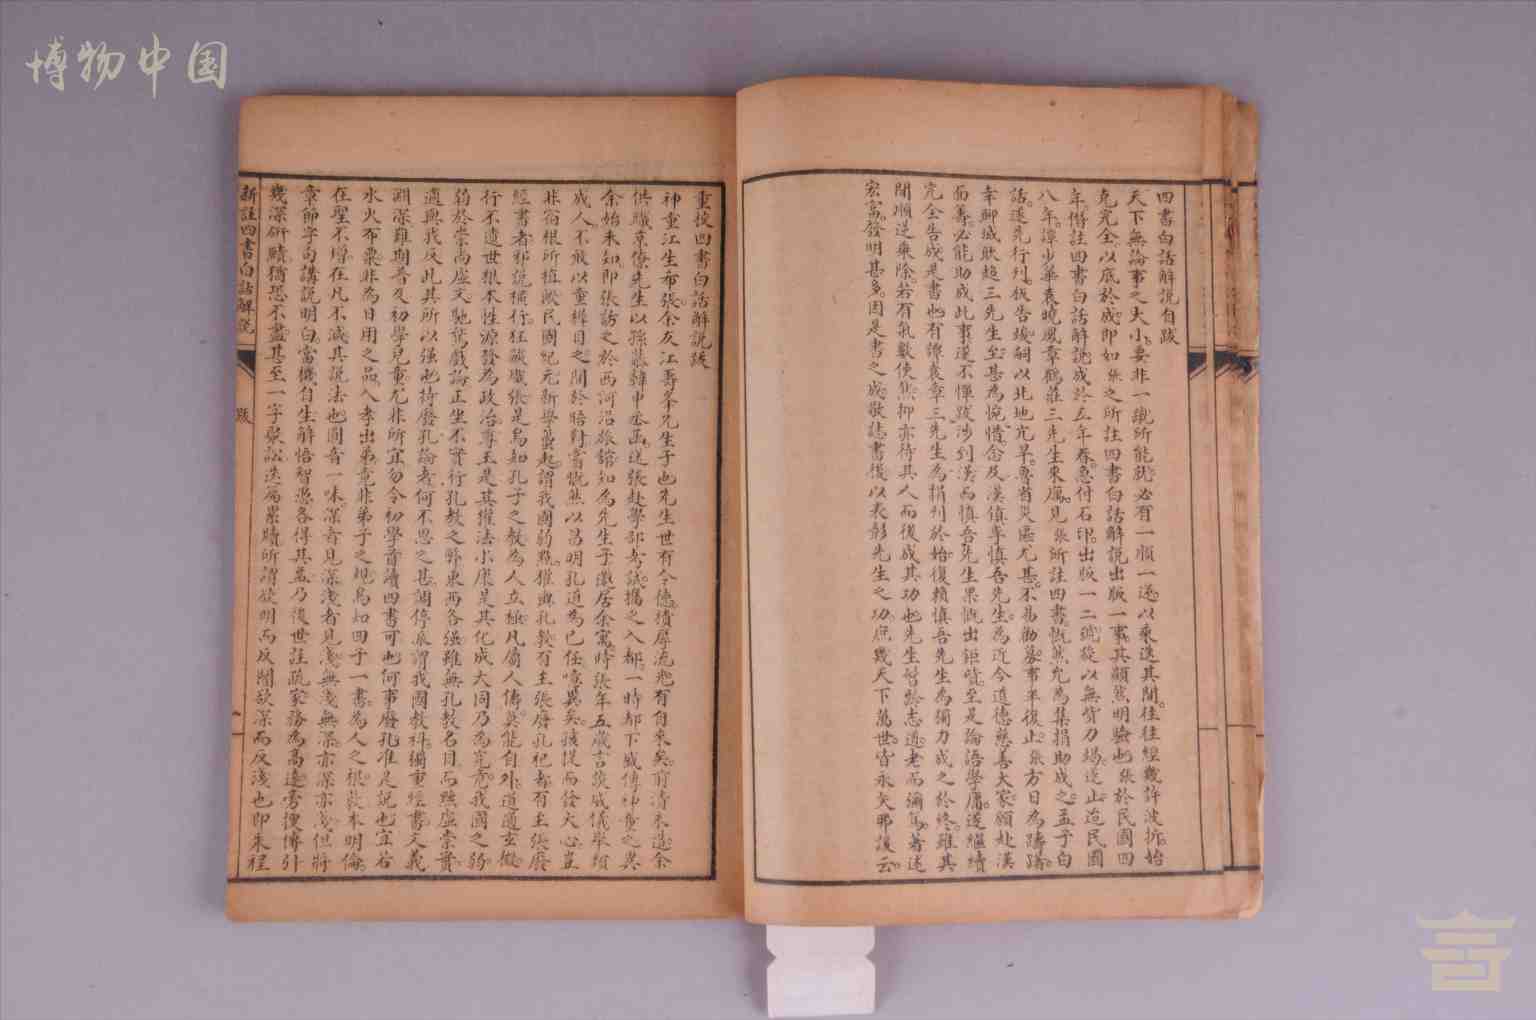 博物中国
四書白話解說自跋
天下無論事之大小要非一蹴所能就必有一順一逆以乘迭其間往往經幾許波折始
克完全以底於成即如張之所註四書白話解說出版一事其顯焉明驗也張於民國四
年僭註四書白話解說成於五年春急付石印出版一二號旋以無貲力竭遂止迨民國
八年漳少華袁曉風章鶴莊三先生來厲見張所註四書慨然允為集捐助成之孟子白
話遂先行列板告竣嗣以北地亢旱魯省災區尤甚不易勸募事半復止張方日為躊躇
幸聊城耿超三先生至甚為惋惜念及漢偵李慎吾先生為近今道德慈善大家願赴漢
面籌必能助成此事遂不憚跋涉到漢而慎吾先生果慨出鉅貲至是論語學庸遂繼續
完全告成是書也有譚袁章三先生為捐刊於始復賴慎吾先生為獨力成之於終雖其
間順逆乘除若有氣數使焉抑亦待其人而後成其功也先生髫齡志道老而彌篤著述
宏富發明甚多因是書之成敬誌書後以表彰先生之功庶幾天下萬世皆永矢弗諼云
重校四書白話解說跋
神童江生希張余友江壽峯兄生子也先生世有令德積厚流光有自來矣前清末造余
供職京僚先生以孫慕韓中丞函送張赴學部考試攜之入都一時都下咸傳神童之異
余始未知即張訪之於西河沿旅館知為先生子邀居余寓時張年五歲言笑威儀舉類
成人不敢以童稚目之閒於晤對嘗慨然以昌明孔道為己任噫異矣孩提而發大心豈
非宿根所植歟民國紀元新學蜂起謂我國弱點權輿孔教有主張廢孔祀者有主張廢
經書者邪說橫行狂蔽熾張是烏知孔子之教為人立極凡屬人儔莫能自外道通玄微
行不遺世根本性源發為政治尊王是其權法小康是其化成大同乃為究竟我國之弱
弱於崇尚虛文馳騖戲論正坐不實行孔教之弊東西各強雖無孔教名目而黜虛崇實
適與我反此其所以強也持廢孔論者何不思之甚調停派謂我國教科獨重經書文義
淵深難期普及初學兒童尤非所宜勿令初學首讀四書可也何事廢孔准是説也宜若
水火布粟非為日用之品入孝出弟竟非弟子之規烏知四子一書為人之根教本明倫
在聖不增在凡不減其說法也圓音一味深者見深淺者見淺無淺無深亦深亦淺但將
章節字句講說明白當機自生解悟智愚各得其益乃後世註疏家務為高遠旁搜傳引
幾深研賾猶恐不盡甚至一字聚訟迭篇累牘所謂欲明而反闇欲深而反淺也即朱程
新註四書白話解說
跋
一